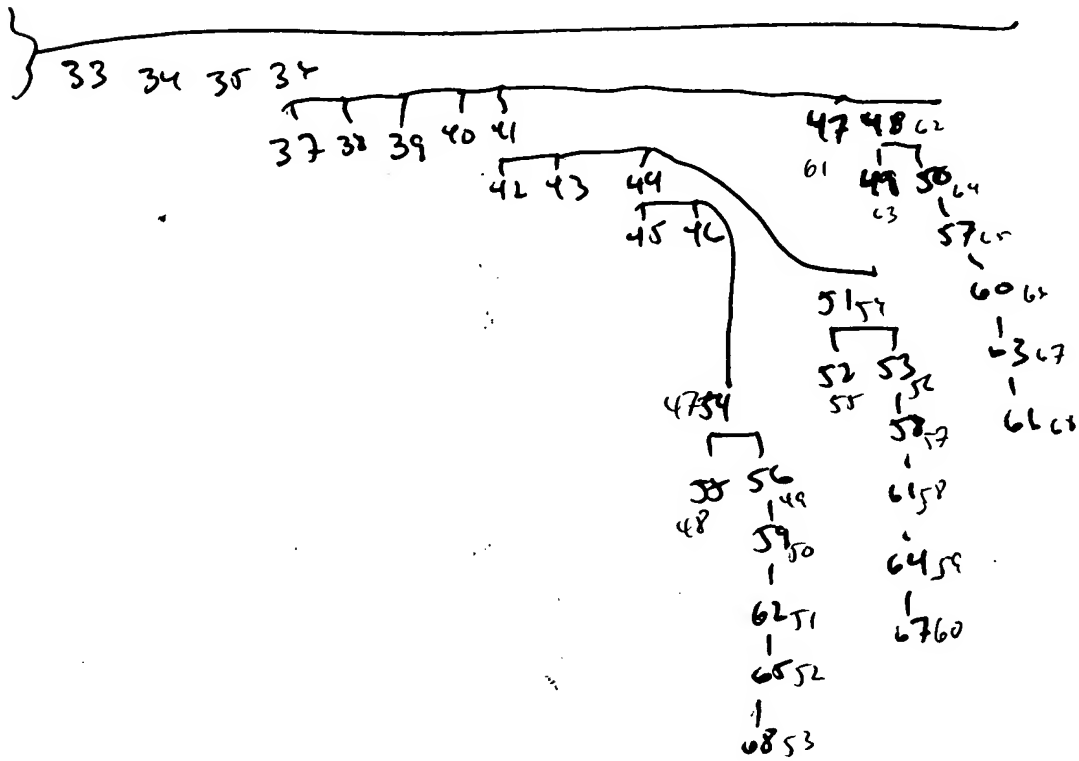 33 34 35 36
37 38 39 40 41 47 48 62
42 43 44 61 49 50 64
63
45 46 57 65
51 54 60 66
52 53 63 67
55 56
47 54 58 57 66 68
55 56 61 58
48 49
59 50 64 59
62 51 67 60
65 52
68 53